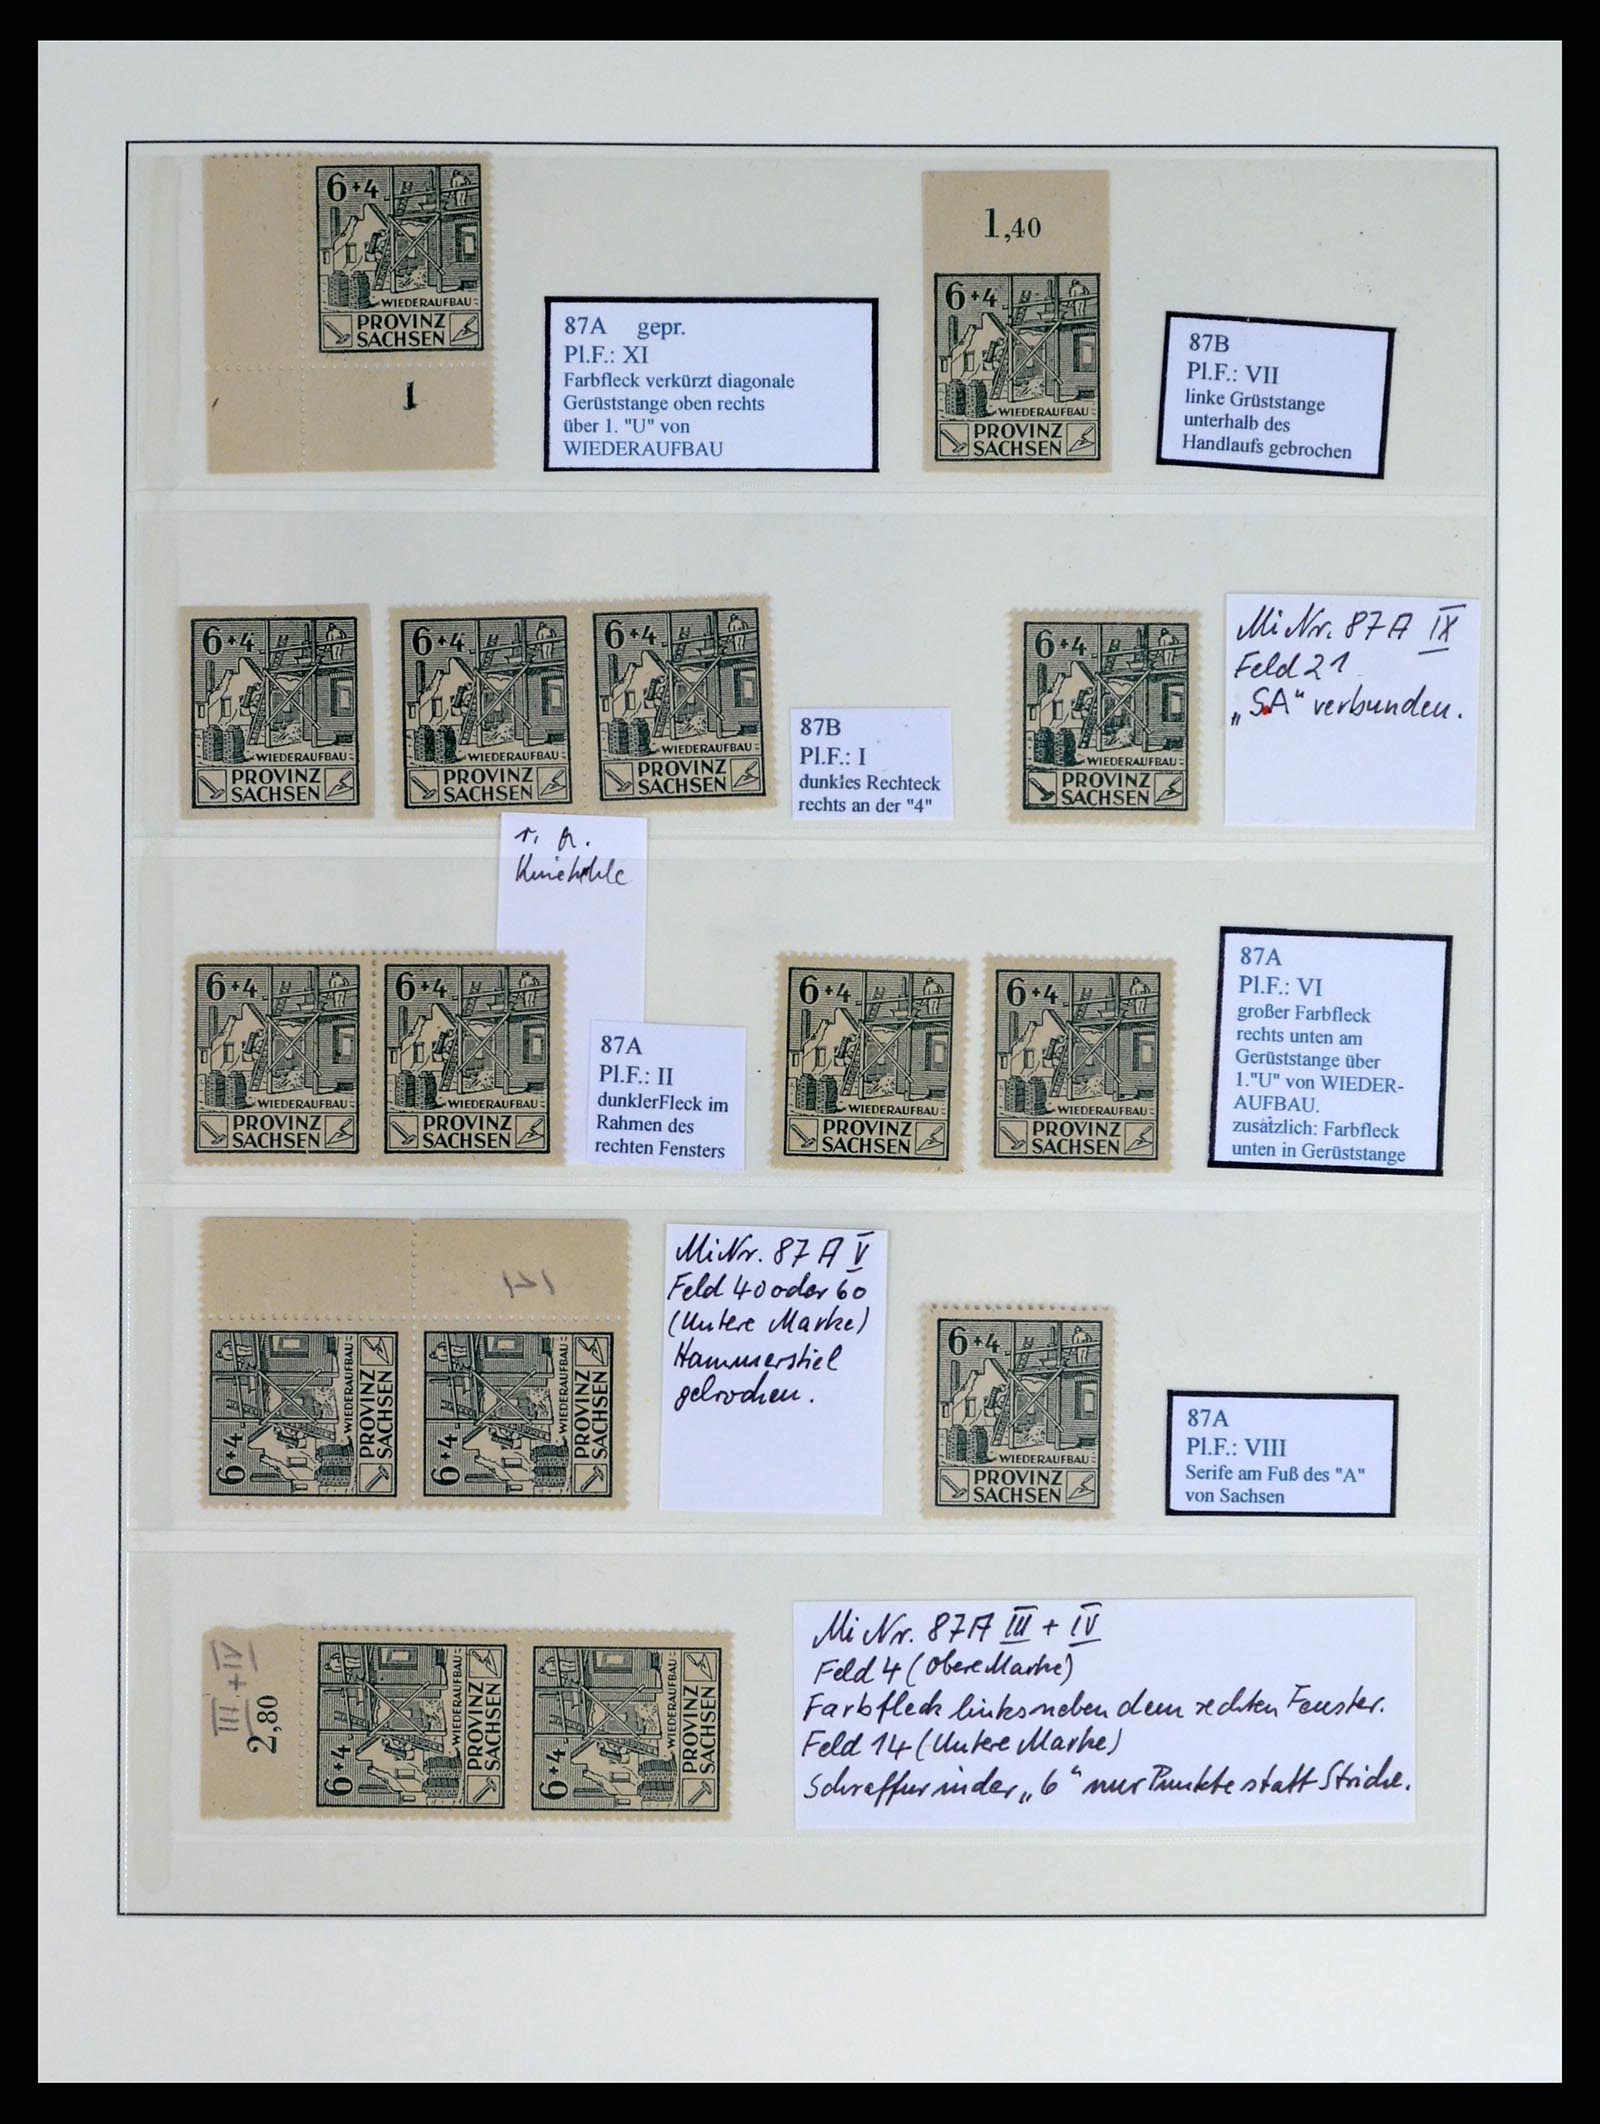 6+4
WIEDERAUFBAU
PROVINZ
SACHSEN
1
87A gepr.
Pl.F.: XI
Farbfleck verkürzt diagonale
Gerüststange oben rechts
über 1. "U" von
WIEDERAUFBAU
1,40
6+4
WIEDERAUFBAU
PROVINZ
SACHSEN
87B
Pl.F.: VII
linke Grüststange
unterhalb des
Handlaufs gebrochen
6+4
WIEDERAUFBAU
PROVINZ
SACHSEN
6+4
WIEDERAUFBAU
PROVINZ
SACHSEN
6+4
WIEDERAUFBAU
PROVINZ
SACHSEN
87B
Pl.F.: I
dunkles Rechteck
rechts an der "4"
6+4
WIEDERAUFBAU
PROVINZ
SACHSEN
Mi Nr. 87 A IX
Feld 21
„SA“ verbunden.
6+4
WIEDERAUFBAU
PROVINZ
SACHSEN
6+4
WIEDERAUFBAU
PROVINZ
SACHSEN
87A
Pl.F.: II
dunklerFleck im
Rahmen des
rechten Fensters
6+4
WIEDERAUFBAU
PROVINZ
SACHSEN
6+4
WIEDERAUFBAU
PROVINZ
SACHSEN
87A
Pl.F.: VI
großer Farbfleck
rechts unten am
Gerüststange über
1."U" von WIEDER-
AUFBAU.
zusätzlich: Farbfleck
unten in Gerüststange
6+4
WIEDERAUFBAU
PROVINZ
SACHSEN
6+4
WIEDERAUFBAU
PROVINZ
SACHSEN
Mi Nr. 87 A V
Feld 40 oder 60
(Untere Marke)
Hammerstiel
gebrochen.
6+4
WIEDERAUFBAU
PROVINZ
SACHSEN
87A
Pl.F.: VIII
Serife am Fuß des "A"
von Sachsen
III + IV
2,80
6+4
WIEDERAUFBAU
PROVINZ
SACHSEN
6+4
WIEDERAUFBAU
PROVINZ
SACHSEN
Mi Nr. 87 A III + IV
Feld 4 (Obere Marke)
Farbfleck links neben dem rechten Fenster.
Feld 14 (Untere Marke)
Schraffur in der „6“ nur Punkte statt Striche.